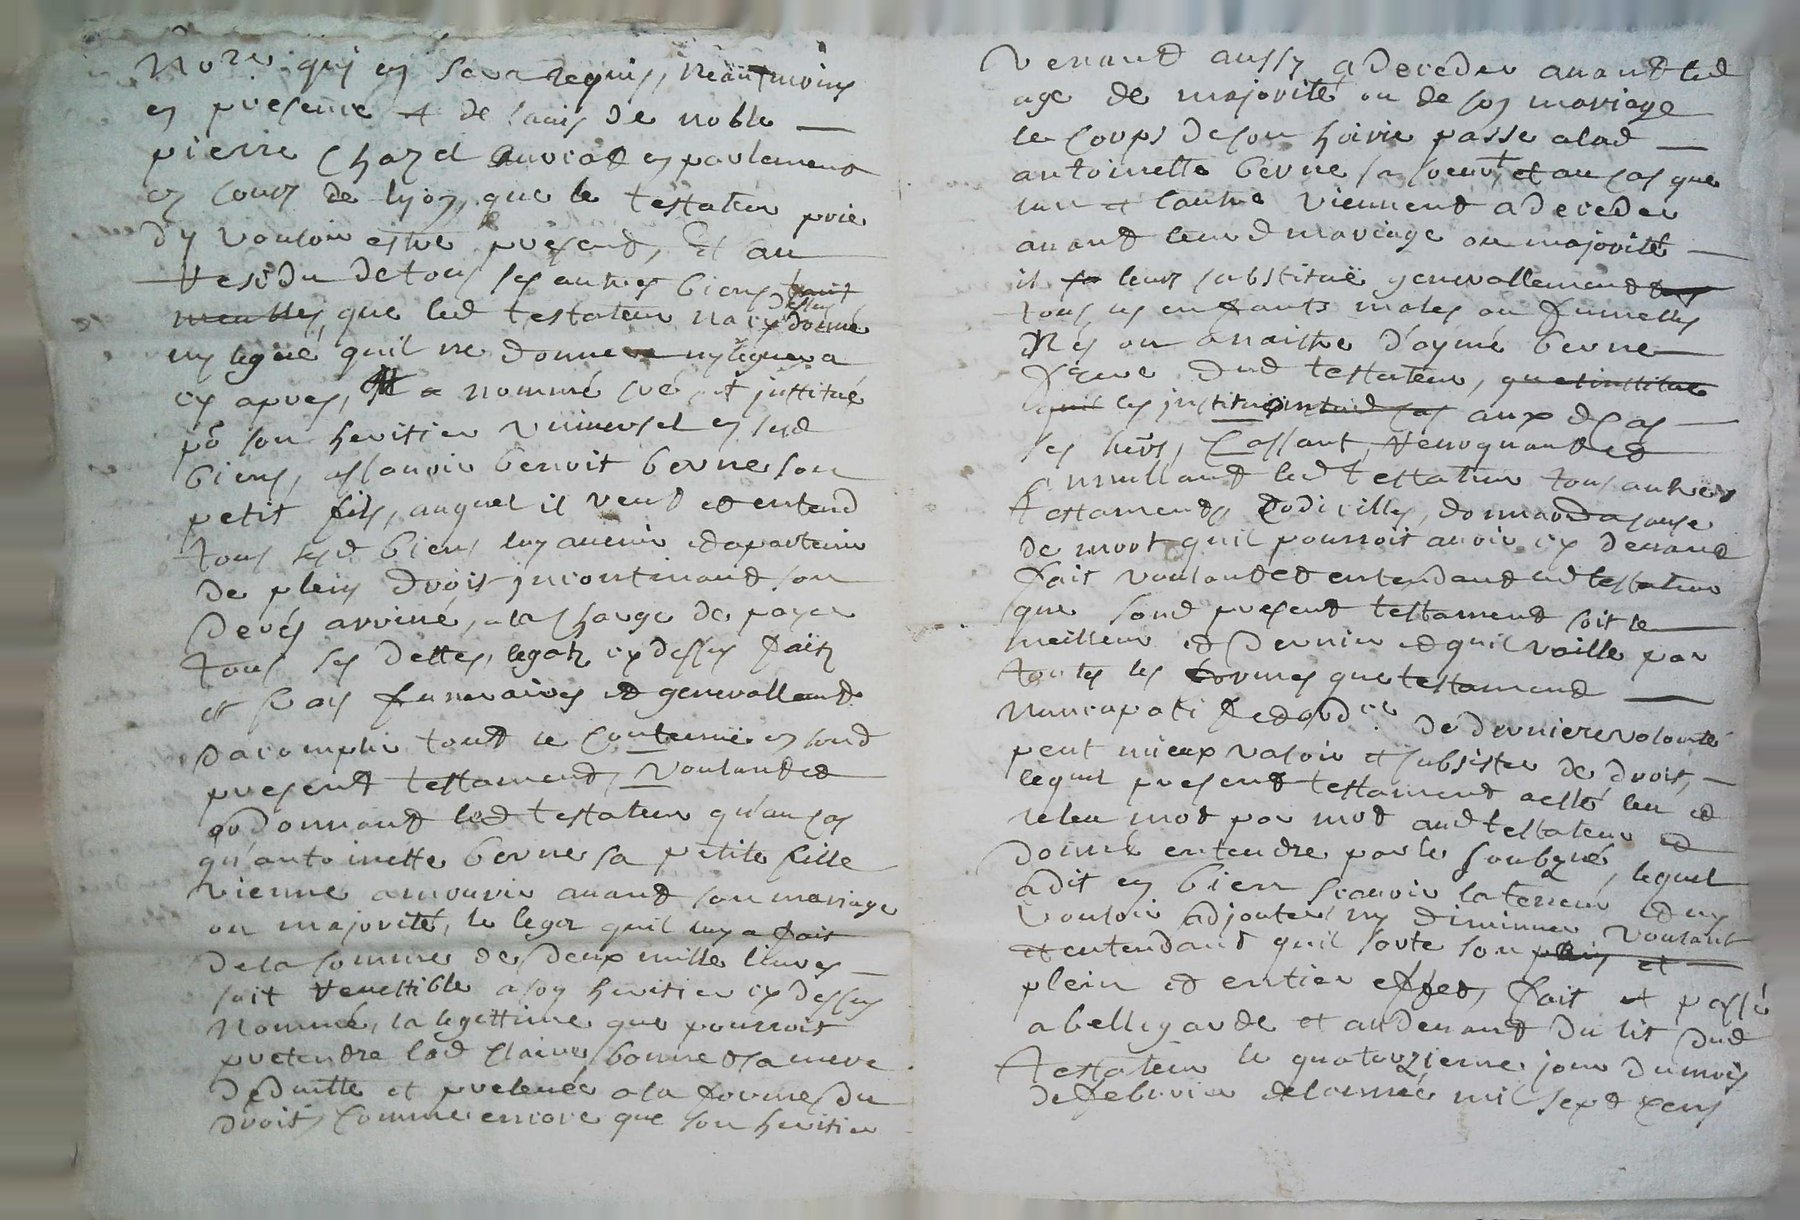 Nore qui en sera requis, neantmoins
en presence et de lauis de noble
pierre Chazel auvocat en parlement
en cour de lyon, que le testateur prie
dy vouloir estre present, Et au
residu de tous ses autres biens
meubles, que led testateur na cy dessus donné
ny legué, quil ne donnera ny leguera
cy apres, Il a nommé creé et jnstitué
po son heritier vniversel en sesd
biens, assauoir benoit berne son
petit fils, auquel il veut et entend
tous sesd biens luy auenir et apartenir
de plein droit jncontinand son
decés arriué, a la charge de payer
tous ses dettes, legatz cy dessus faitz
et frais funeraires et generallemt
dacomplir tout le contenu en sond
present testament, voulant et
ordonnant led testateur qu'au cas
qu'antoinette berne sa petite fille
vienne a mourir auant son mariage
ou majorité, le legat quil luy a fait
de la somme de deux mille liures
soit reuersible a son heritier cy dessus
nommé, la legittime que pourroit
pretendre lad claire bonnet sa mere
deduitte et preleuée a la forme du
droit, comme encore que son heritier
venant aussy a deceder auant led
age de majorité ou de son mariage
le corps de son hoirie passe a lad
antoinette berne sa soeur, et au cas que
lun et lautre viennent a deceder
auant leurd mariage ou majorité
il leur substitue generallement
tous les enfants males ou fumelles
Nés ou a naistre d'aymé berne
frere dud testateur, quel institue
les jnstitue aux d cas
ses hers, Cassant, reuoquant et
annullant led testateur tous autres
testaments, Codicilles, donnaõn a cause
de mort quil pourroit auoir cy deuant
fait voulant et entendant led testateur
que sond present testament soit le
meilleur et dernier et quil vaille par
toutes les formes que testament
nuncupatif et ord.re de derniere volonté
peut mieux valoir et subsister de droit,
lequel present testament a esté leu et
releu mot par mot aud testateur et
donné entendre par le soubzné, lequel
a dit en bien scauoir la teneur et ny
vouloir adjouter ny diminuer voulant
et entendant quil sorte son plein et
plein et entier effet, fait et passé
a bellegarde et audeuant du lit dud
testateur le quatorzieme jour du mois
de febvrier de lannée mil sept cens